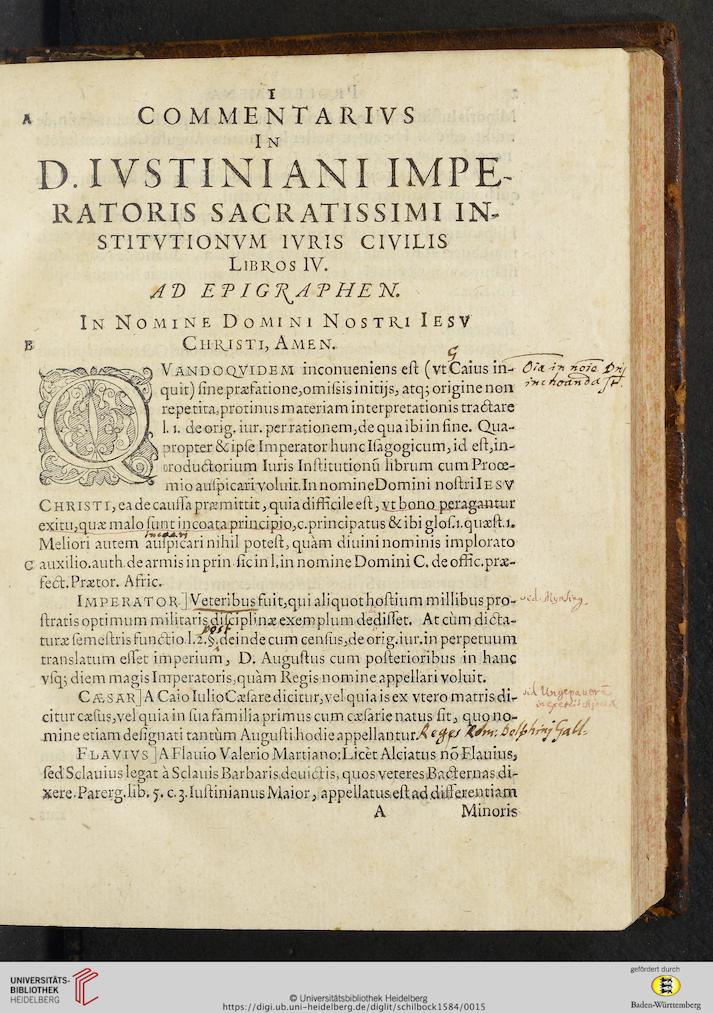 I
A
COMMENTARIVS
IN
D. IVSTINIANI IMPE-
RATORIS SACRATISSIMI IN-
STITVTIONVM IVRIS CIVILIS
LIBROS IV.
AD EPIGRAPHEN.
IN NOMINE DOMINI NOSTRI IESV
B
CHRISTI, AMEN.
QVANDOQVIDEM inconueniens eſt (vt Caius in-
G
Oia in noie Dnj
inchoanda st.
quit) ſine præfatione, omiſsis initijs, atq; origine non
repetita, protinus materiam interpretationis tractare
l. 1. de orig. iur. per rationem, de qua ibi in fine. Qua-
propter & ipſe Imperator hunc Iſagogicum, id eſt, in-
troductorium Iuris Inſtitutionũ librum cum Prooe-
mio auſpicari voluit. In nomine Domini noſtri IESV
CHRISTI, ea de cauſſa præmittit, quia difficile eſt, vt bono peragantur
exitu, quæ malo ſunt incoata principio, c. principatus & ibi gloſ. 1. quæſt. 1.
Meliori autem auſpicari nihil poteſt, quàm diuini nominis implorato
C auxilio. auth. de armis in prin. ſic in l. in nomine Domini C. de offic. præ-
fect. Prætor. Afric.
IMPERATOR] Veteribus fuit, qui aliquot hoſtium millibus pro-
ſtratis optimum militaris diſciplinæ exemplum dediſſet. At cùm dicta-
post
turæ ſemeſtris functio l. 2. §. deinde cum cenſus, de orig. iur. in perpetuum
translatum eſſet imperium, D. Auguſtus cum poſterioribus in hanc
vſq; diem magis Imperatoris, quàm Regis nomine appellari voluit.
CÆSAR] A Caio Iulio Cæſare dicitur, vel quia is ex vtero matris di-
citur cæſus, vel quia in ſua familia primus cum cæſarie natus ſit, quo no-
mine etiam deſignati tantùm Auguſti hodie appellantur. Reges Rom: Delphinj Gall.
FLAVIVS] A Flauio Valerio Martiano: Licèt Alciatus nõ Flauius,
ſed Sclauius legat à Sclauis Barbaris deuictis, quos veteres Bacternas di-
xere. Parerg. lib. 5. c. 3. Iuſtinianus Maior, appellatus eſt ad differentiam
A Minoris
UNIVERSITÄTS-
BIBLIOTHEK
HEIDELBERG
© Universitätsbibliothek Heidelberg
https://digi.ub.uni-heidelberg.de/diglit/schilbock1584/0015
gefördert durch
Baden-Württemberg